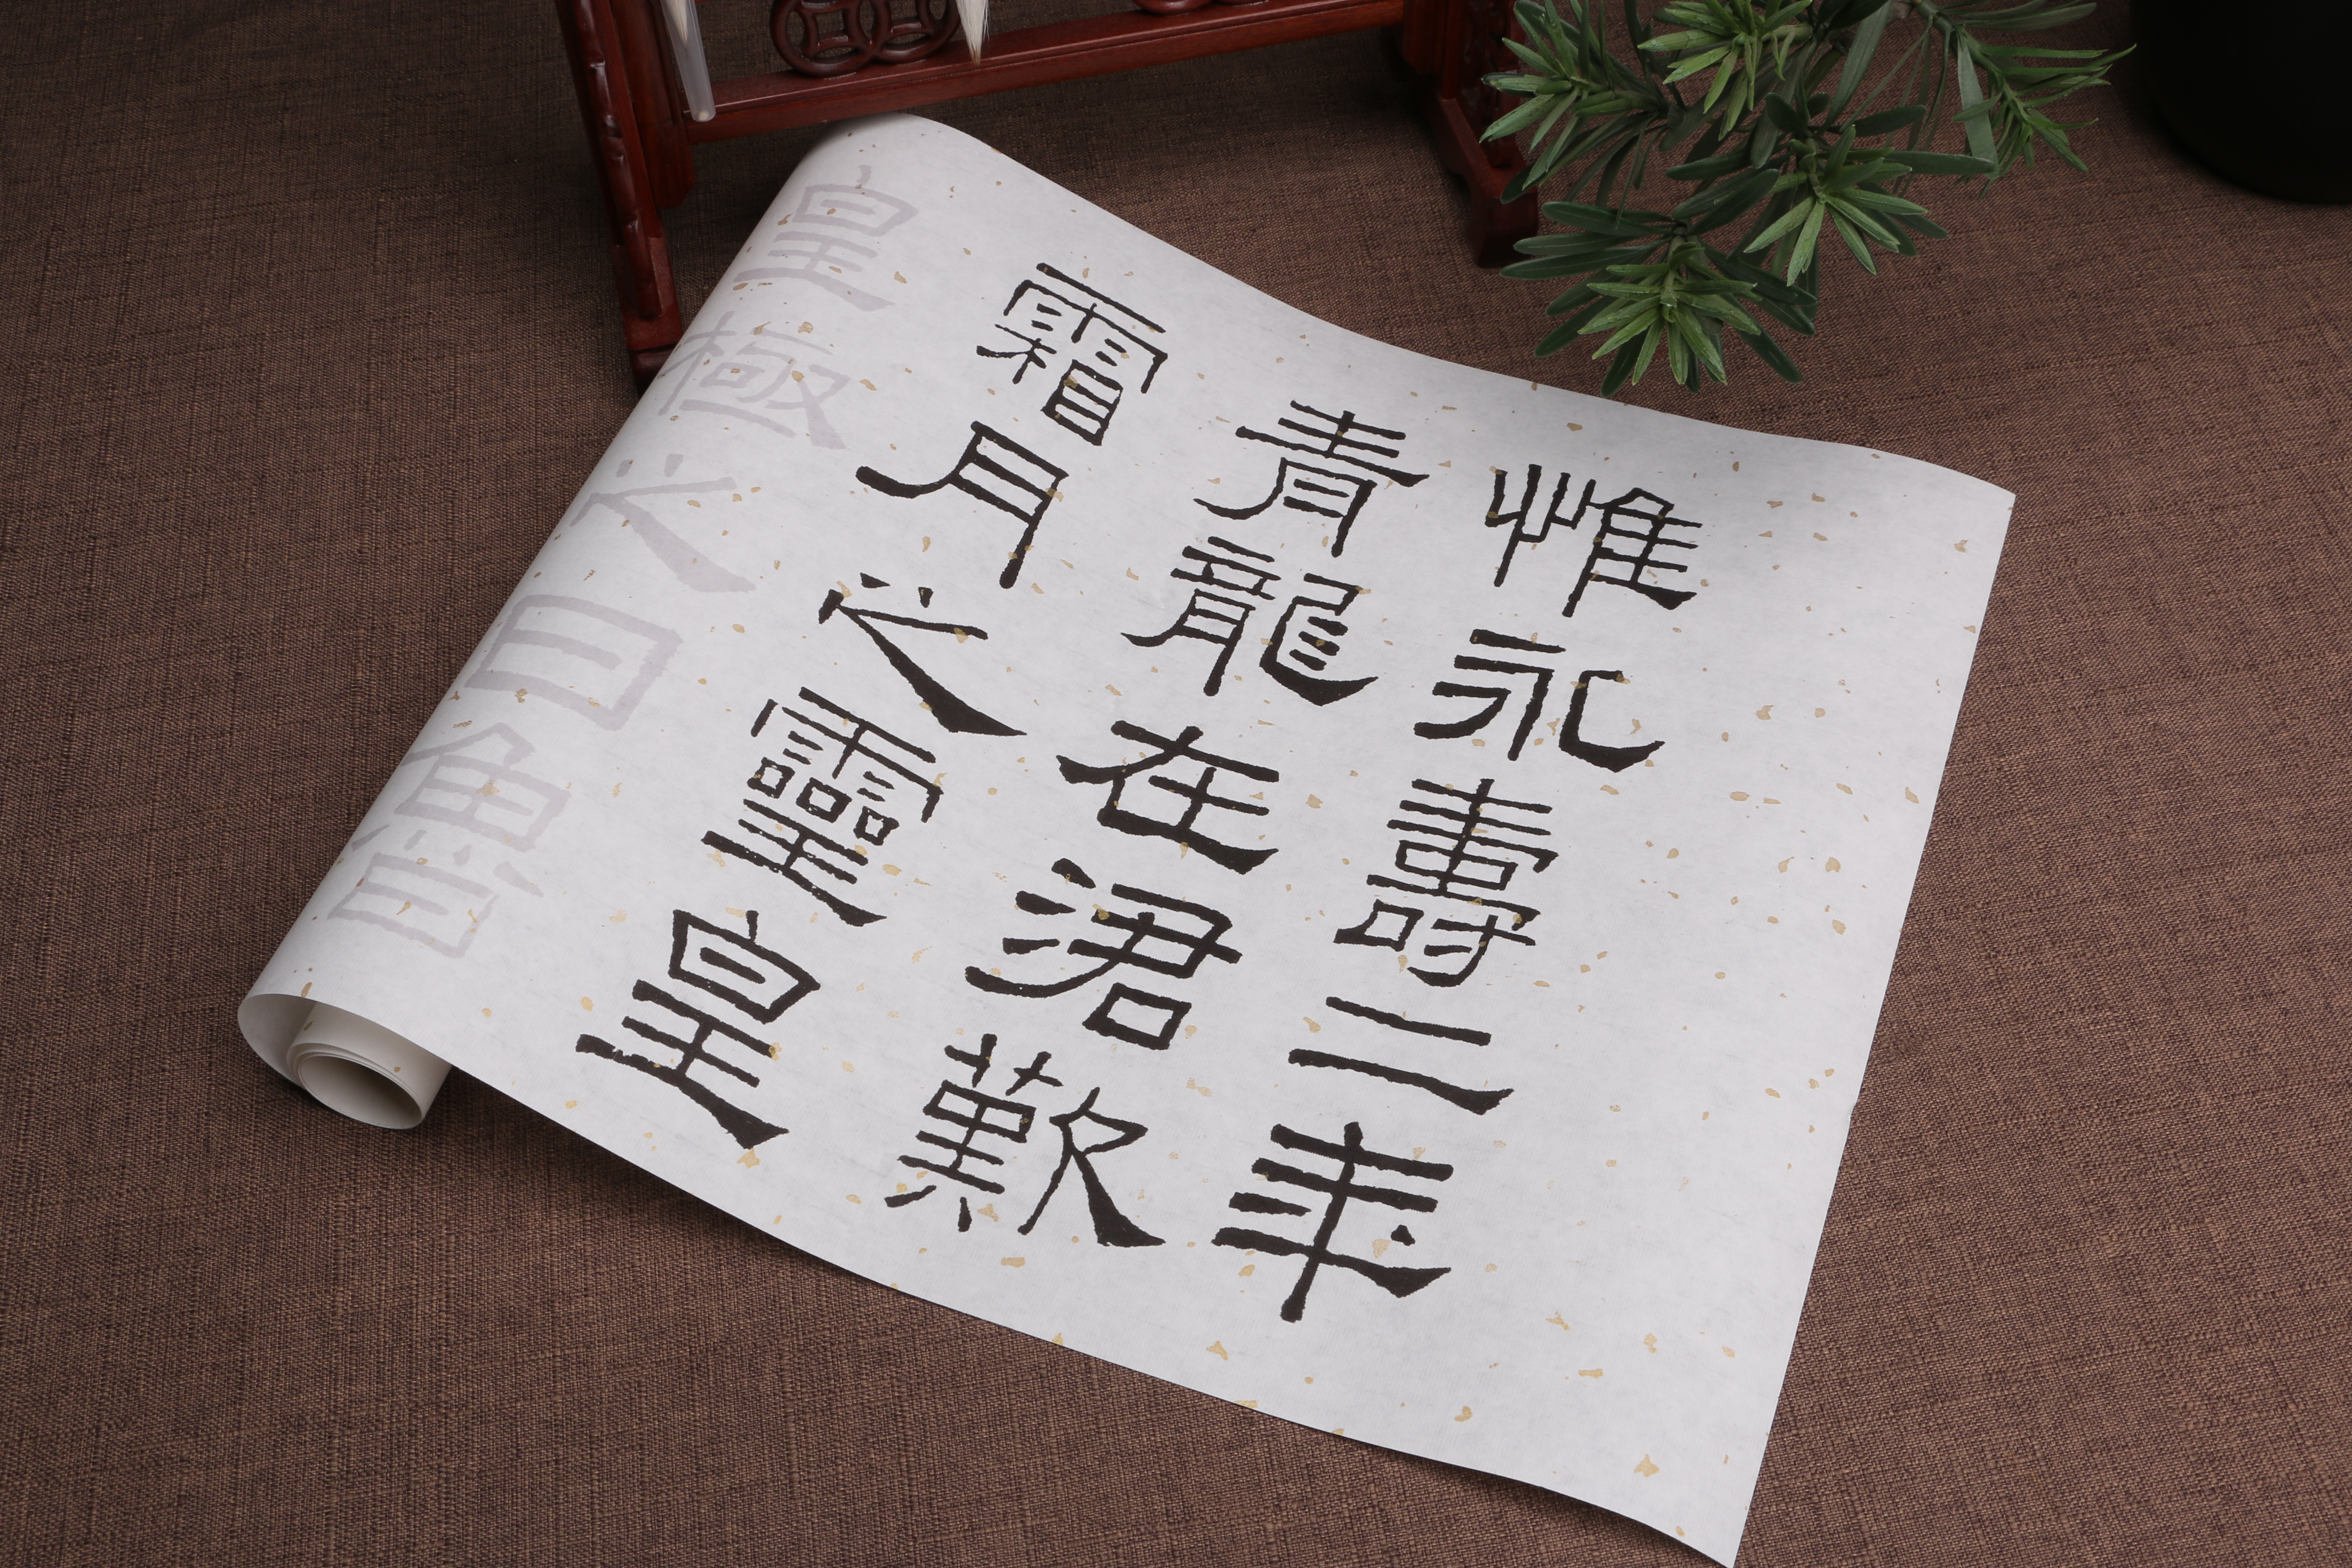 惟永壽二年
青龍在涒歎
霜月之靈皇
皇極之日魯